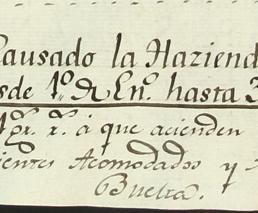 Causado la Haziend
sde 1º de Enº. hasta 3
qr. r. á que acienden
ientes Acomodados y
Buelta.